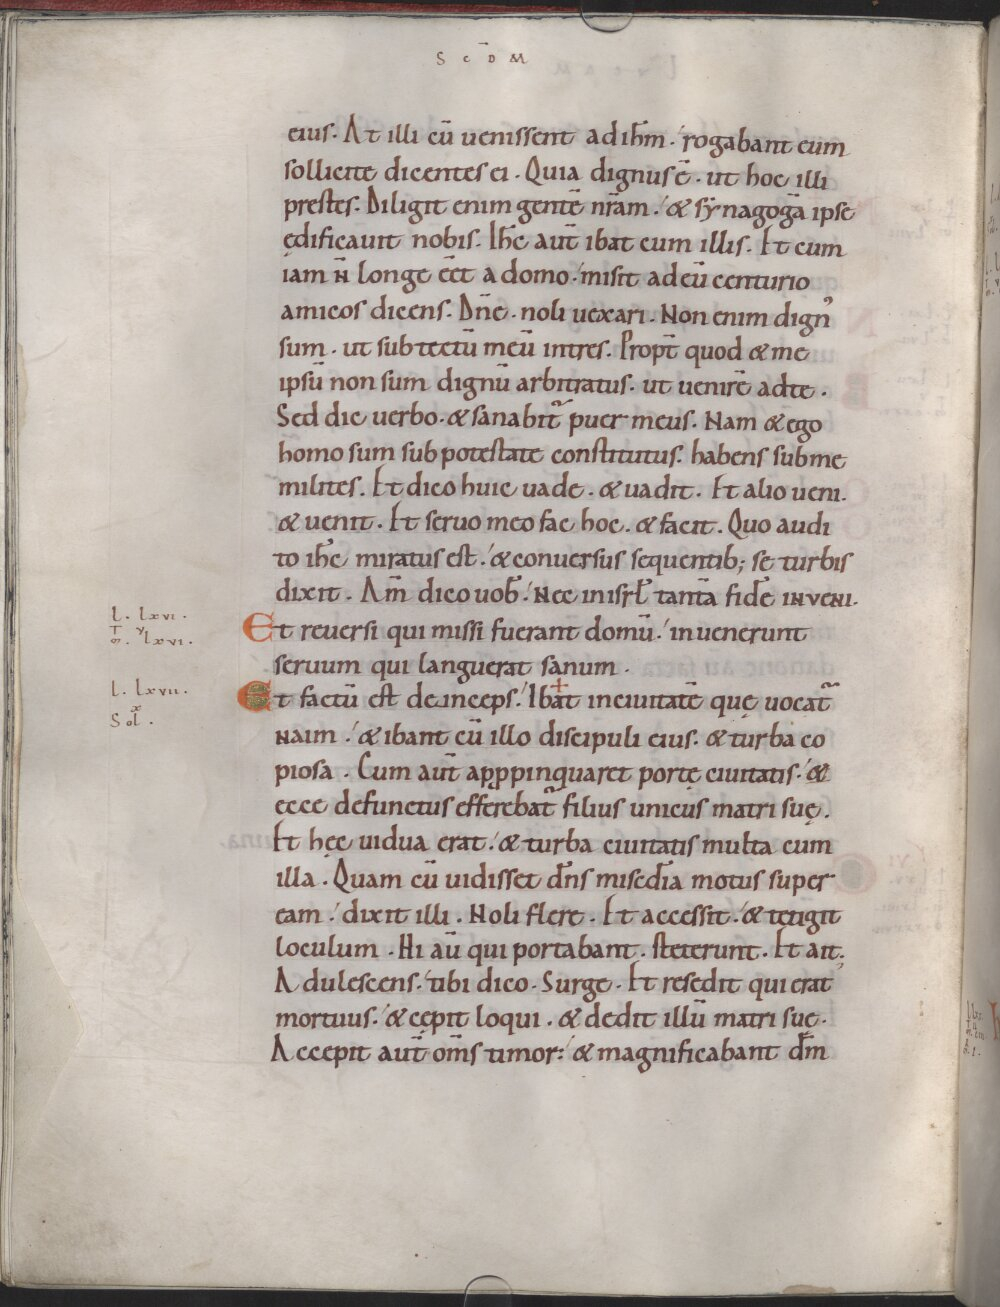 SCD̄M
eius. At illi cū uenissent ad ihm̄. rogabant eum
sollicite dicentes ei. Quia dignus ē. ut hoc illi
prestes. Diligit enim gentē nr̄am. & synagogā ipse
ędificauit nobis. Ihc̄ aut̄ ibat cum illis. Et cum
iam n̄ longe eēt a domo. misit ad eū centurio
amicos dicens. Dn̄e. noli uexari. Non enim dignꝰ
sum. ut sub tectū meū intres. Propt̄ quod & me
ipsū non sum dignū arbitratus. ut uenirē ad te.
Sed dic uerbo. & sanabit᷑ puer meus. Nam & ego
homo sum sub potestate constitutus. habens sub me
milites. Et dico huic uade. & uadit. Et alio ueni.
& uenit. Et seruo meo fac hoc. & facit. Quo audi
to ihc̄ miratus est. & conuersus sequentib; se turbis
dixit. Am̄ dico uob̄. Nec in isrl̄ tantā fidē inueni.
Et reuersi qui missi fuerant domū. inuenerunt
seruum qui languerat sanum.
Et factū est deinceps. Ibat in ciuitatē quę uocat᷑
naim. & ibant cū illo discipuli eius. & turba co
piosa. Cum aut̄ appropinquaret portę ciuitatis. &
ecce defunctus efferebat᷑ filius unicus matri suę.
Et hęc uidua erat. & turba ciuitatis multa cum
illa. Quam cū uidisset dn̄s misedīa motus super
eam. dixit illi. Noli flere. Et accessit. & tetigit
loculum. Hi aū qui portabant. steterunt. Et ait;
Adulescens. tibi dico. Surge. Et resedit qui erat
mortuus. & cępit loqui. & dedit illū matri suę.
Accepit aut̄ oms̄ timor. & magnificabant dm̄
l. lxvi.
m̄. v lxvi.
l. lxvii.
x
Sol.